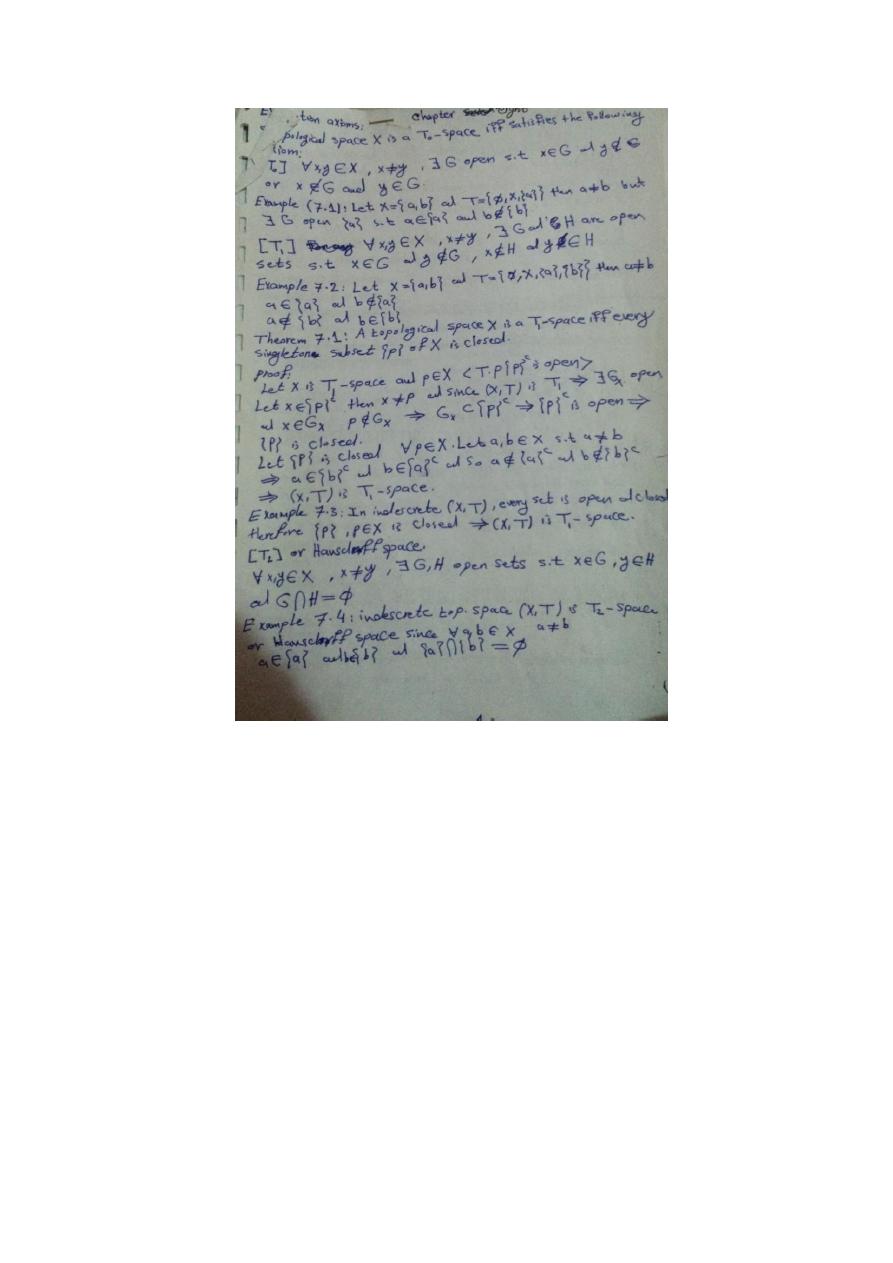 ton axioms: — chapter
pological space X is a T₀-space iff satisfies the following
iom:
T₀] ∀x,y∈X , x≠y , ∃ G open s.t x∈G and y∉G
or x∉G and y∈G.
Example (7.1): Let X={a,b} and T={∅,X,{a}} then a≠b but
∃ G open {a} s.t a∈{a} and b∉{b}
[T₁] ∀x,y∈X , x≠y , ∃ G and H are open
sets s.t x∈G and y∉G , x∉H and y∈H
Example 7.2: Let X={a,b} and T={∅,X,{a},{b}} then a≠b
a∈{a} and b∉{a}
a∉{b} and b∈{b}
Theorem 7.1: A topological space X is a T₁-space iff every
singleton subset {p} of X is closed.
proof:
Let X is T₁-space and p∈X <T.p {p}ᶜ is open>
Let x∈{p}ᶜ then x≠p and since (X,T) is T₁ ⇒ ∃Gₓ open
and x∈Gₓ p∉Gₓ ⇒ Gₓ⊂{p}ᶜ ⇒ {p}ᶜ is open ⇒
{P} is closed.
Let {P} is closed ∀p∈X. Let a,b∈X s.t a≠b
⇒ a∈{b}ᶜ and b∈{a}ᶜ and so a∉{a}ᶜ and b∉{b}ᶜ
⇒ (X,T) is T₁-space.
Example 7.3: In indescrete (X,T), every set is open and closed
therefore {p}, p∈X is closed ⇒ (X,T) is T₁-space.
[T₂] or Hausdorff space.
∀x,y∈X , x≠y , ∃ G,H open sets s.t x∈G , y∈H
and G∩H=∅
Example 7.4: indescrete top. space (X,T) is T₂-space
or Hausdorff space since ∀a,b∈X a≠b
a∈{a} and b∈{b} and {a}∩{b}=∅